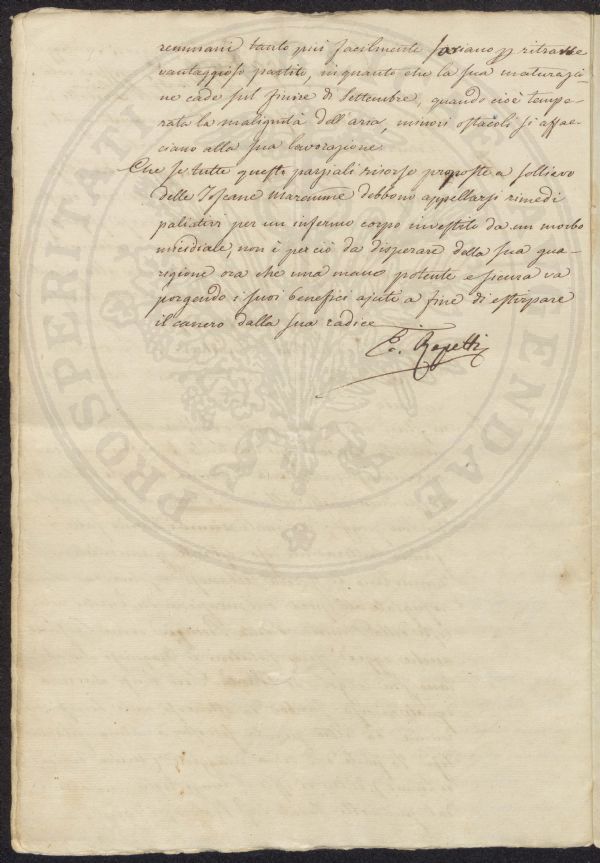 remmani tanto più facilmente saviano p ritrarre
vantaggioso partito, in quanto che la sua maturazio-
ne cade sul finire di Settembre, quando cioè tempe-
rata la malignità dell'aria, minori ostacoli si affac-
ciano alla sua lavorazione.
Che se tutte queste parziali risorse proposte a sollievo
delle Toscane maremme debbono appellarsi rimedi
paliativi per un infermo corpo investito da un morbo
micidiale, non è per ciò da disperare della sua gua-
rigione ora che una mano potente e sicura va
porgendo i suoi benefici ajuti a fine di estirpare
il cancro dalla sua radice
E. Repetti
PROSPERITATI
AUGENDAE